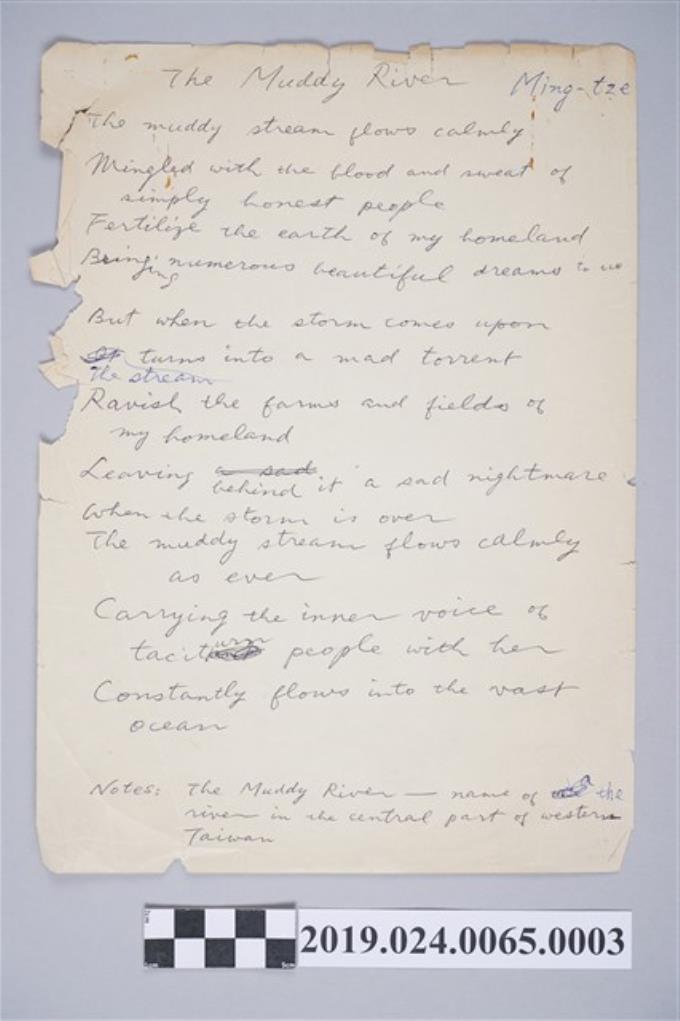 The Muddy River Ming-tze
The muddy stream flows calmly
Mingled with the blood and sweat of
simply honest people
Fertilize the earth of my homeland
Bringing numerous beautiful dreams to us
But when the storm comes upon
It turns into a mad torrent
The stream
Ravish the farms and fields of
my homeland
Leaving a sad
behind it a sad nightmare
When the storm is over
The muddy stream flows calmly
as ever
Carrying the inner voice of
taciturn people with her
Constantly flows into the vast
ocean
Notes: The Muddy River — name of a the
river in the central part of western
Taiwan
2019.024.0065.0003
5cm